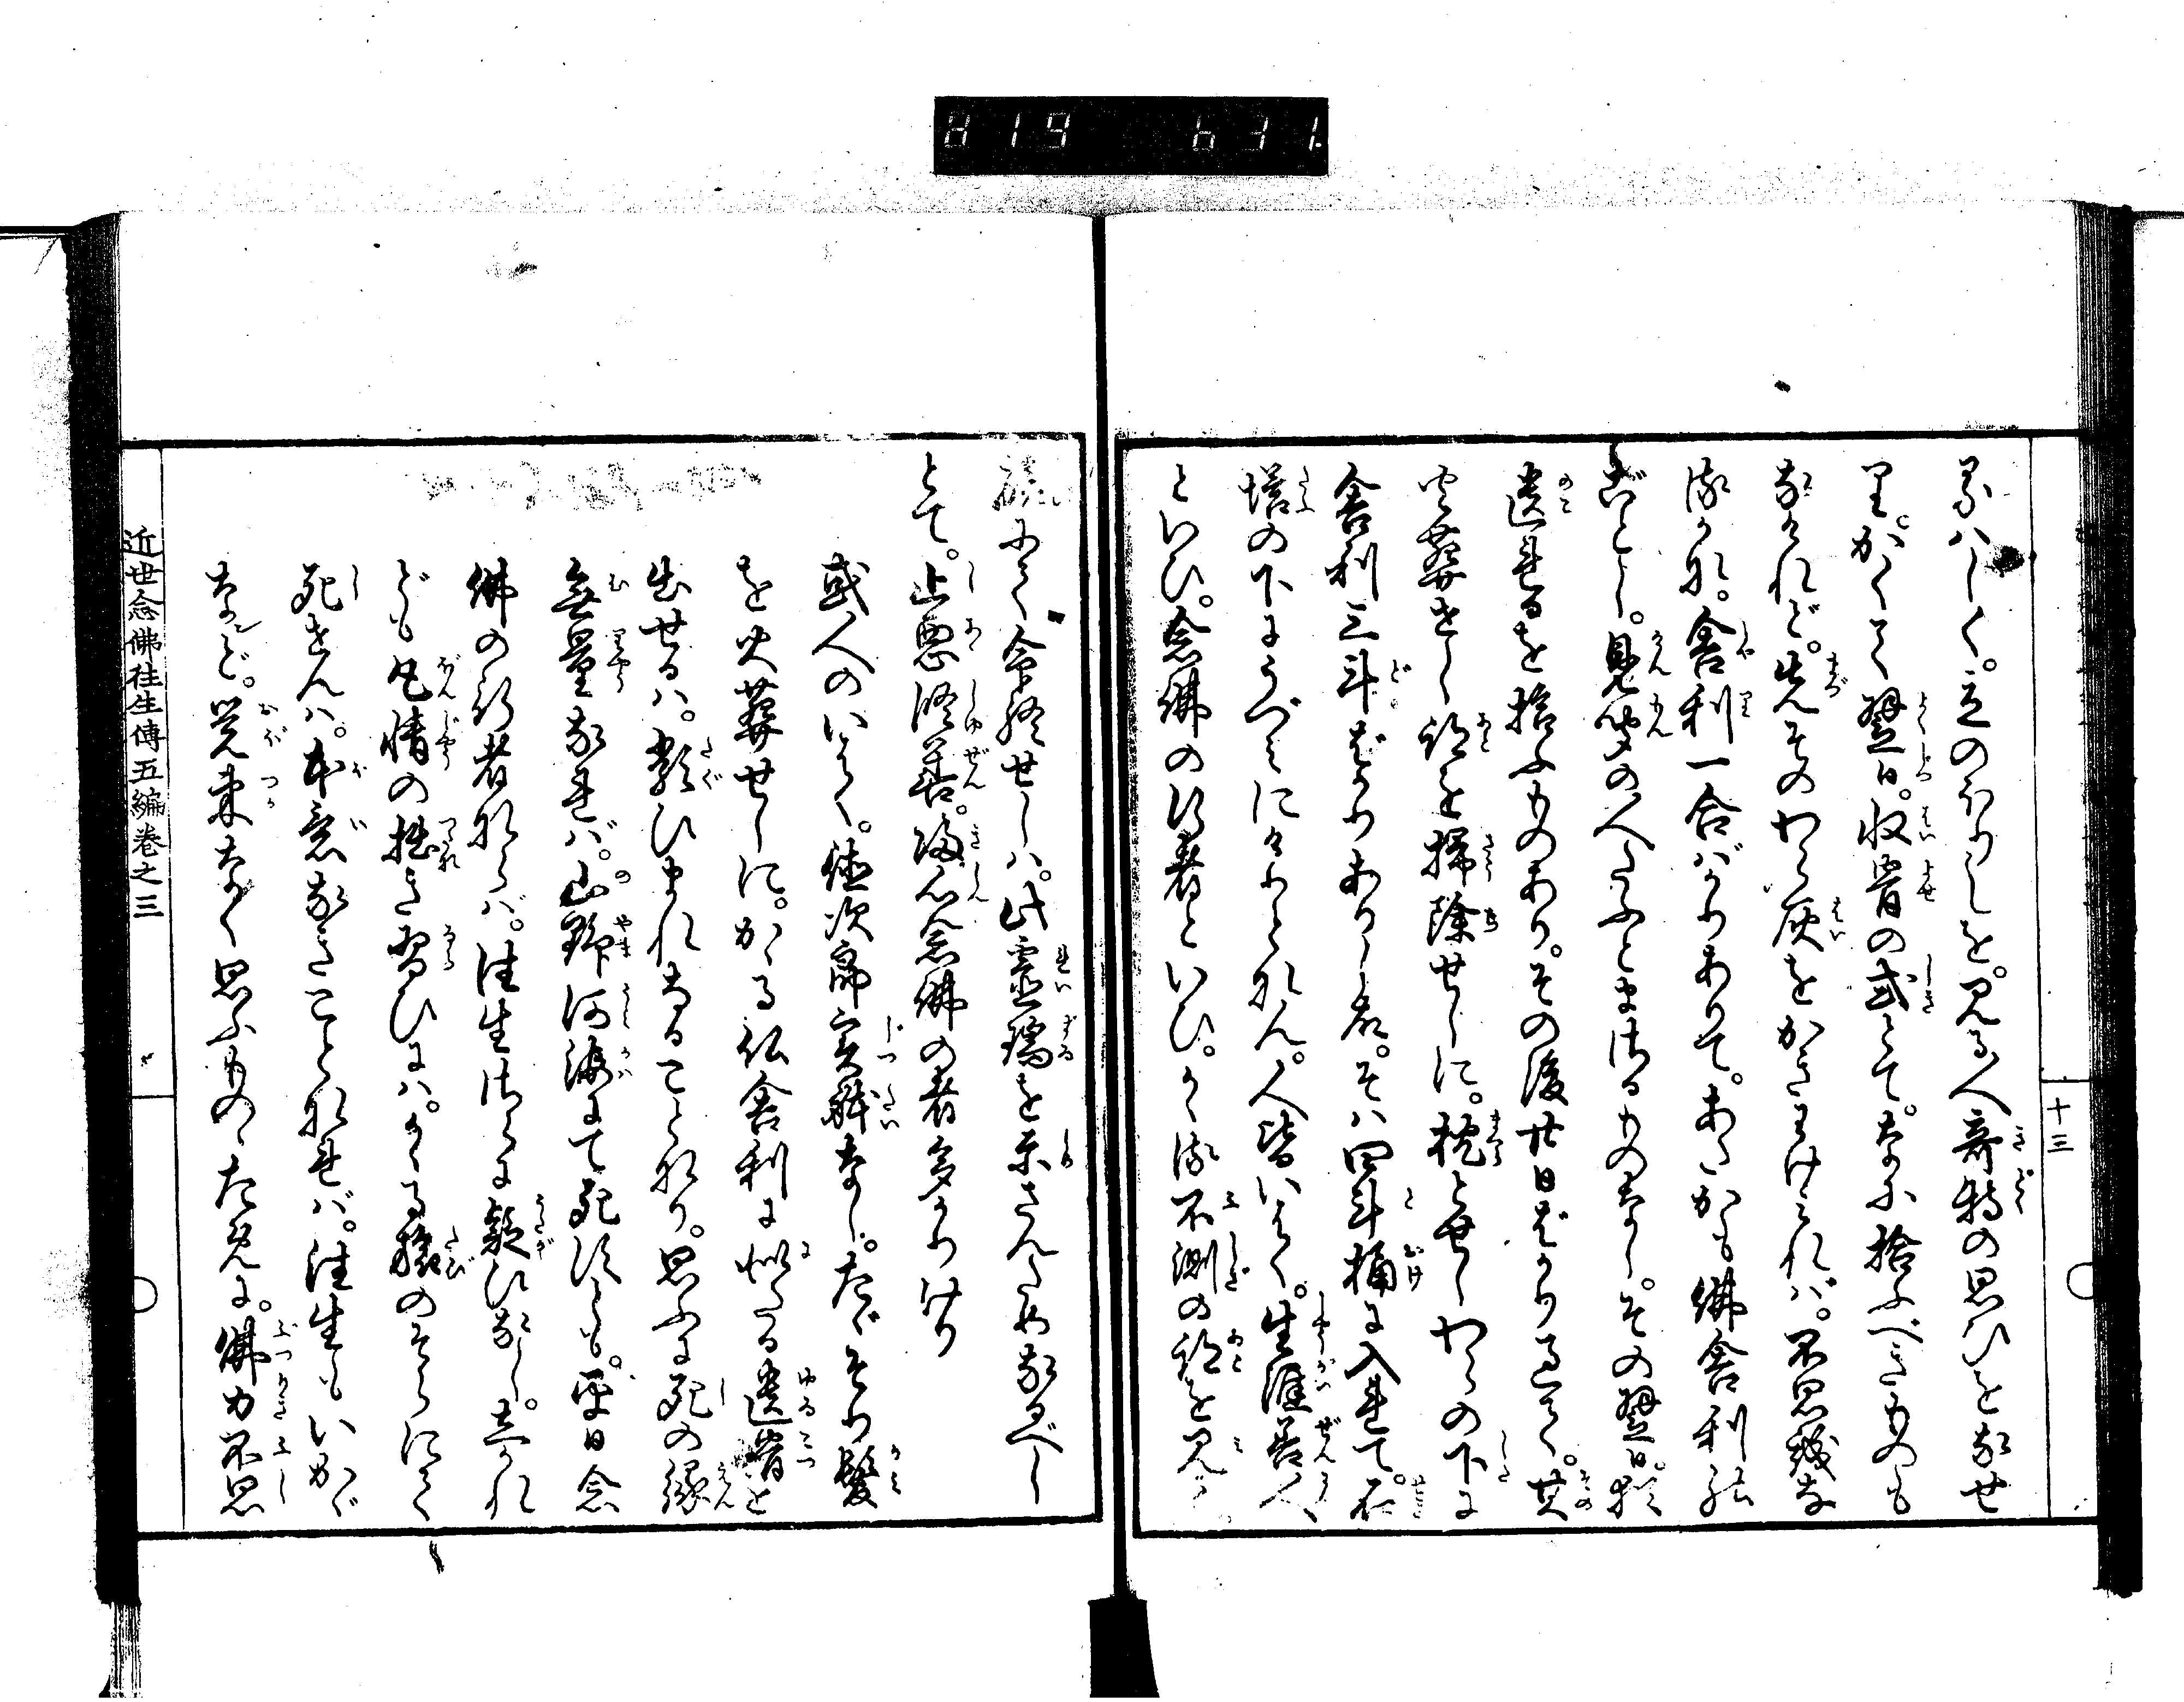 819 631.
十三
くハしく。立のほりしを。見る人奇特の思ひをなせ
り。かくて翌日。収骨の式とて。なに拾ふべきものも
なけれど。先そのわら灰をかきわけみれバ。不思議な
るかな。舎利一合ばかりありて。あたかも佛舎利の
ごとし。見聞の人たふとまざるものなし。その翌日。猶
遺れるを拾ふものあり。その後廿日ばかり過て。其
火葬せし跡を掃除せしに。枕とせしわらの下に
舎利三斗ばかりありし故。そハ四斗桶に入れて。石
塔の下にうづミにけりとなん。人皆いはく。生涯善人
といひ。念佛の行者といひ。かゝる不測の跡を見
にて命終せしハ。此靈瑞を示さんためなるべし
とて。止悪修善。歸心念佛の者多かりけり
或人のいはく。徳次郎実躰なし。たゞそり髪
を火葬せしに。かゝる仏舎利に似たる遺骨を
出せるハ。類ひまれなることなり。思ふに死の縁
無量なれバ。山野河海にて死すとも。平日念
佛の行者ならバ。往生はさらに疑ひなし。しかれ
ども凡情の拙き習ひにハ。かゝる旅のそらにて
死せんハ。本意なきことなれバ。往生もいかゞ
など。覚束なく思ふものゝために。佛力不思
近世念佛往生傳五編卷之三